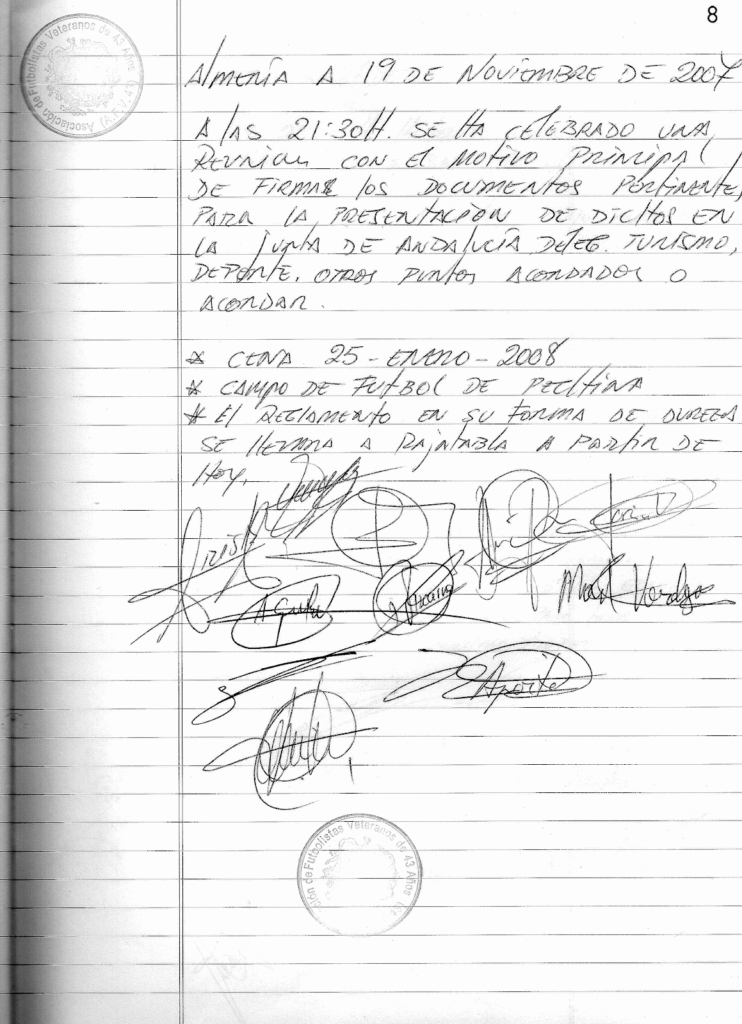 8
Asociación de Futbolistas Veteranos de 43 Años
Almería a 19 de Noviembre de 2007
A las 21:30H. se ha celebrado una
reunion con el motivo principal
de firmar los documentos pertinente,
para la presentación de dichos en
la junta de Andalucía Deleg. Turismo,
Deporte, otros puntos acordados o
acordar.
* Cena 25-Enero-2008
* Campo de futbol de Pechina
* El reglamento en su forma de dureza
se llevara a rajatabla a partir de
Hoy.
ción de Futbolistas Veteranos de 43 Años